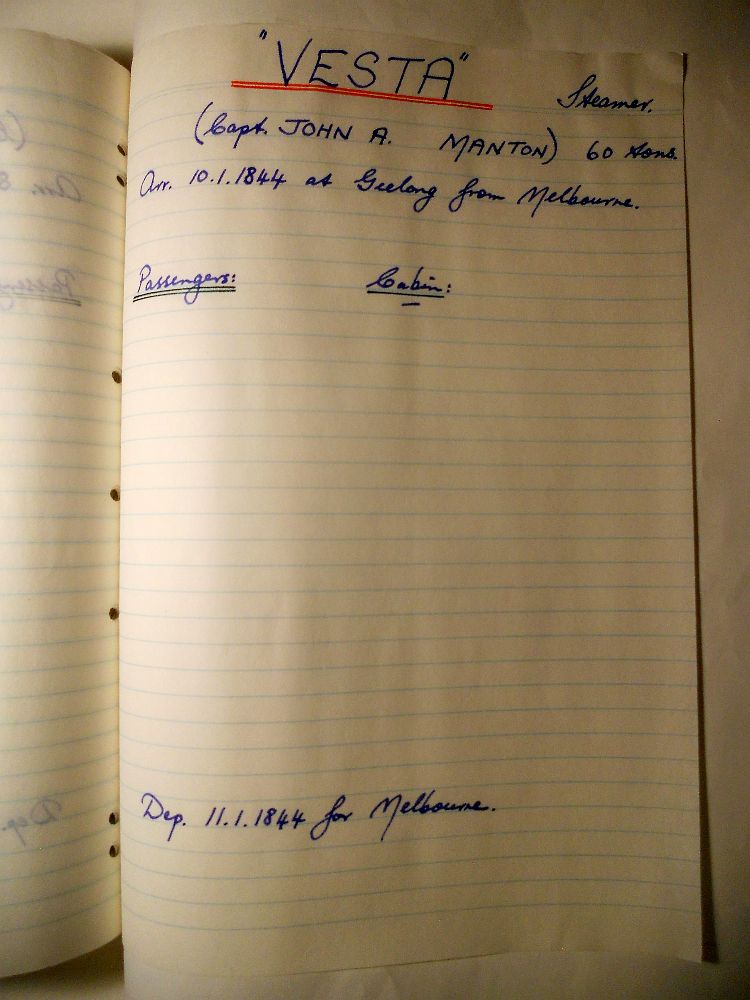 "VESTA"
Steamer.
(Capt. JOHN A. MANTON) 60 tons.
Arr. 10.1.1844 at Geelong from Melbourne.
Passengers: Cabin:
Dep. 11.1.1844 for Melbourne.